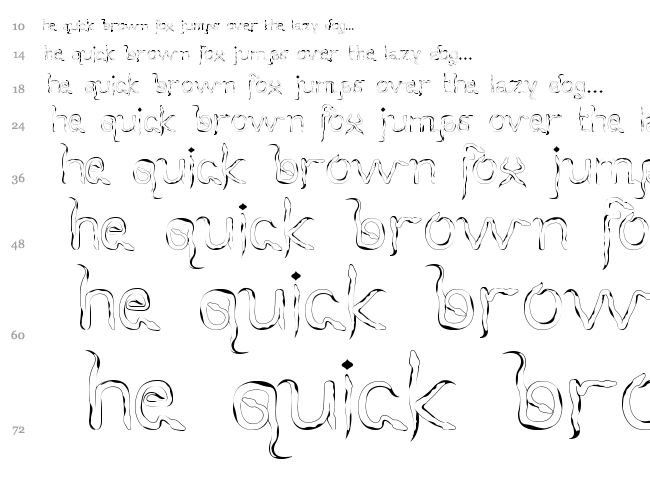 10 he quick brown fox jumps over the lazy dog...
14 he quick brown fox jumps over the lazy dog...
18 he quick brown fox jumps over the lazy dog...
24 he quick brown fox jumps over the la
36 he quick brown fox jump
48 he quick brown fo
60 he quick brow
72 he quick bro